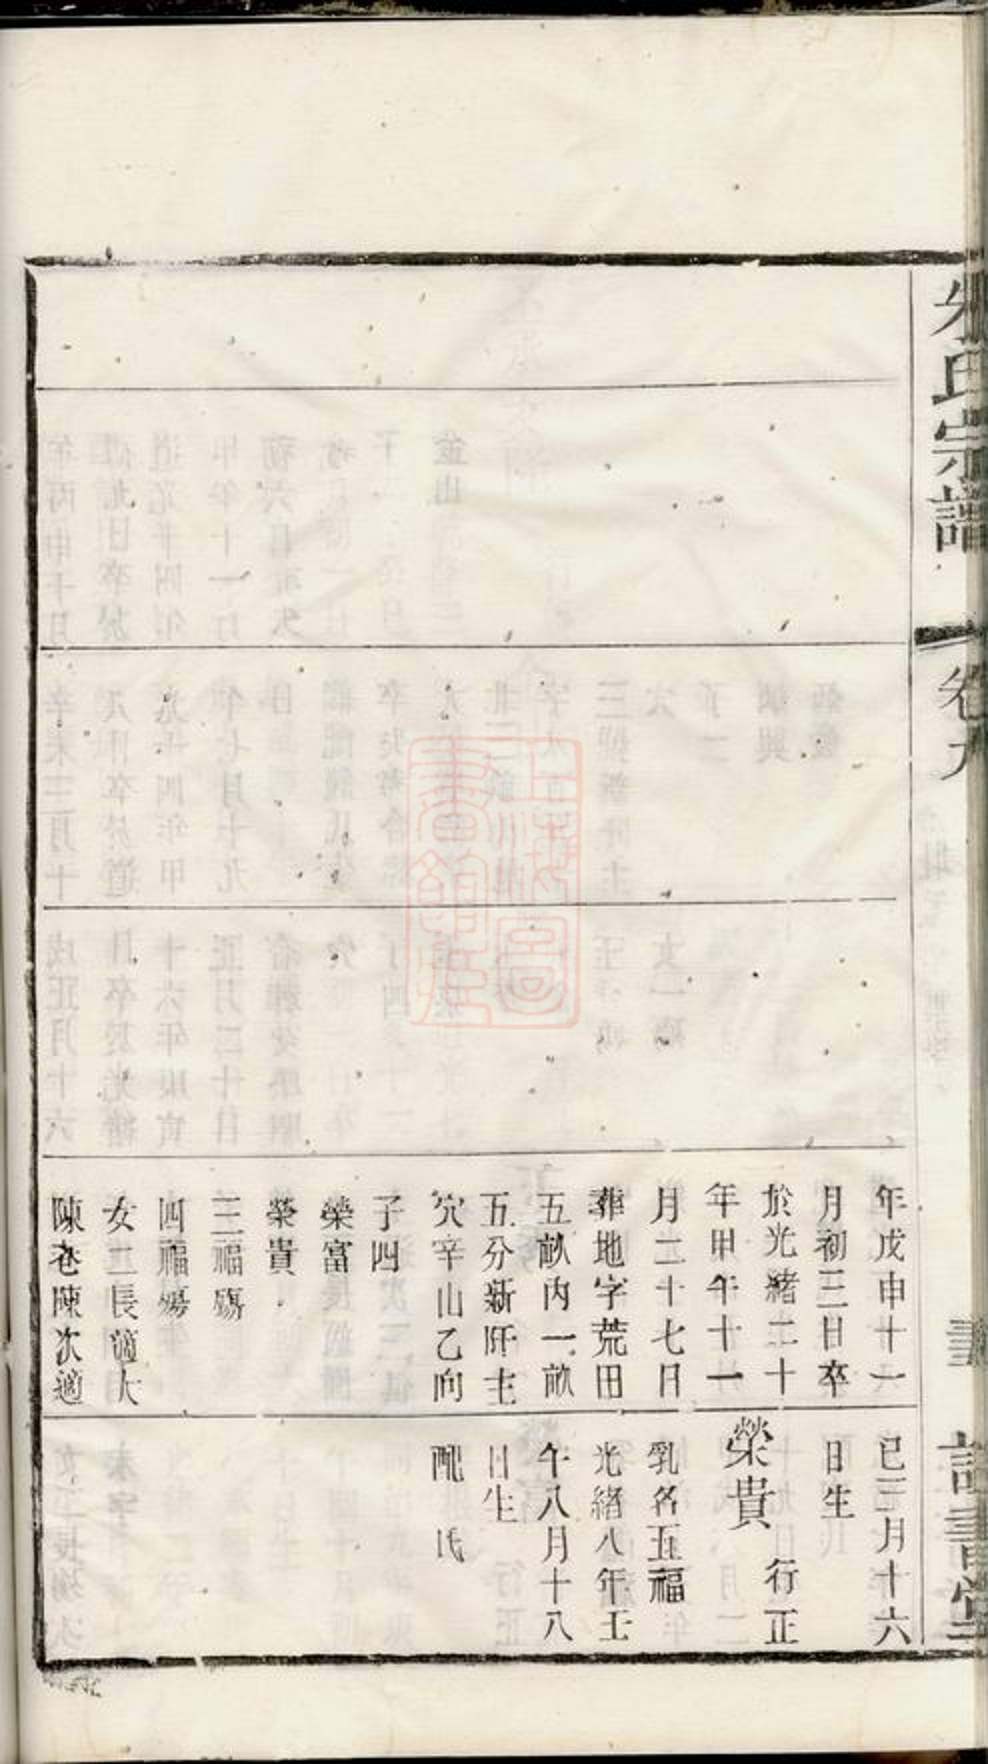 朱氏宗譜
卷九
詩書堂
年戊申十一
月初三日卒
於光緒二十
年甲午十一
月二十七日
葬地字荒田
五畝內一畝
五分新阡主
穴辛山乙向
子四
榮富
榮貴
三福殤
四福殤
女二長適大
陳巷陳次適
巳三月十六
日生
榮貴 行正
乳名五福
光緒八年壬
午八月十八
日生
配 氏
上海圖
書館藏